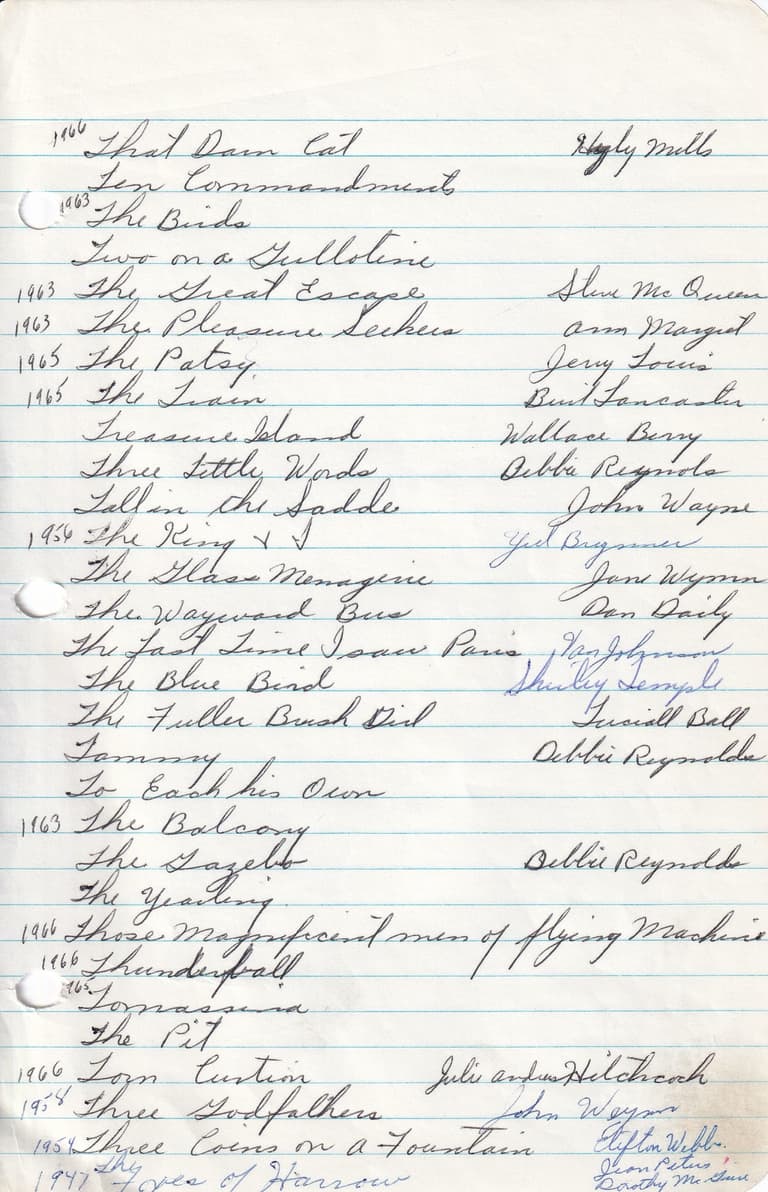 1966 That Darn Cat Hayly Mills
Ten Commandments
1963 The Birds
Two on a Gullotine
1963 The Great Escape Steve Mc Queen
1963 The Pleasure Seekers Ann Margret
1965 The Patsy Jerry Louis
1965 The Train Burt Lancaster
Treasure Island Wallace Berry
Three Little Words Debbie Reynols
Tall in the Sadde John Wayne
1956 The King & I Yul Brynner
The Glass Menagerie Jane Wymn
The Wayward Bus Dan Daily
The Last Time I saw Paris Van Johnson
The Blue Bird Shirley Temple
The Fuller Brush Girl Luciall Ball
Tammy Debbie Reynolds
To Each his Own
1963 The Balcony
The Gazebo Debbie Reynolds
The Yearling
1966 Those Magnificent men of flying Machine
1966 Thunderball
1965 Tomassina
The Pit
1966 Torn Curtion Julie Hitchcock
1958 Three Godfathers John Waynn
1954 Three Coins on a Fountain Clifton Webb.
Jean Peters
1947 The Foxes of Harrow Dorothy Mc Guire